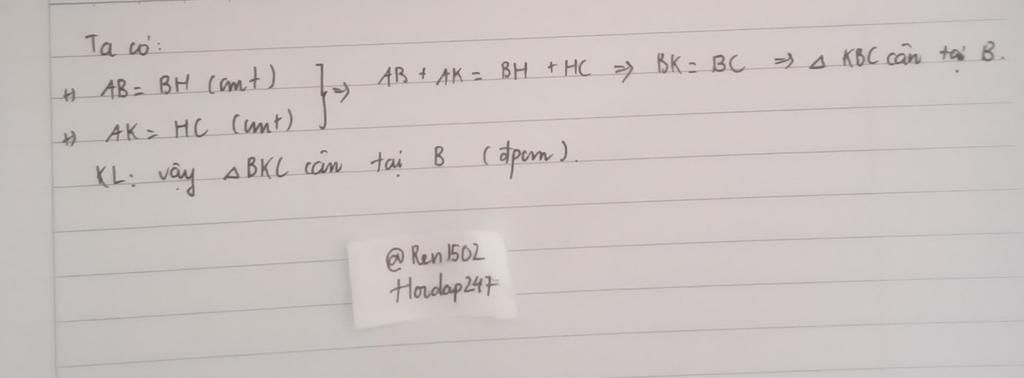 Ta có:
+) AB = BH (cmt)
+) AK = HC (cmt) } => AB + AK = BH + HC => BK = BC => △ KBC cân tại B.
KL: vậy △BKC cân tại B (đpcm).
@Ren1502
Hoidap247